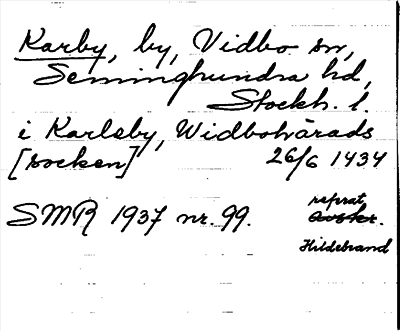 Karby, by, Vidbo sn,
Seminghundra hd,
Stockh. l.
i Karleby, Widbohärads
[socken] 26/6 1434
SMR 1937 nr. 99.
referat
Hildebrand